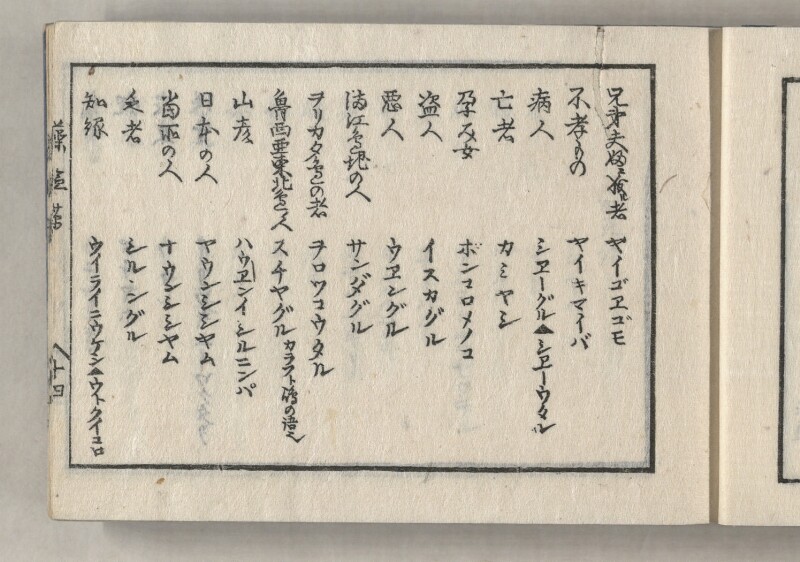 兄弟夫婦ニ後レ者 ヤイゴヱゴモ
不孝もの ヤイキマイバ
病人 シヱーグル▲シヱーウタル
亡者 カミヤシ
孕み女 ホンコロメノコ
盗人 イスカグル
悪人 ウヱングル
満江邑地の人 サンダグル
ヲリカタ邑の者 ヲロツコウタル
魯西亜東北邑ノ人 スチヤグル カラフト嶋の語ニ
山彦 ハウヱンイシルニンパ
日本の人 ヤウンシシヤム
当所の人 ナウンシシヤム
老者 シルンングル
知縁 ウイライニウケシ▲ウトクイコロ
藻塩草
十四